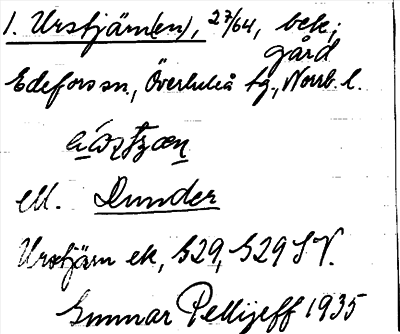 1. Urstjärn(en), 27/64, bek;
gård
Edefors sn, Överluleå tg, Norrb. l.
ell. Dunder
Urstjärn ek, 529, 529 SV.
Gunnar Pellijeff 1935